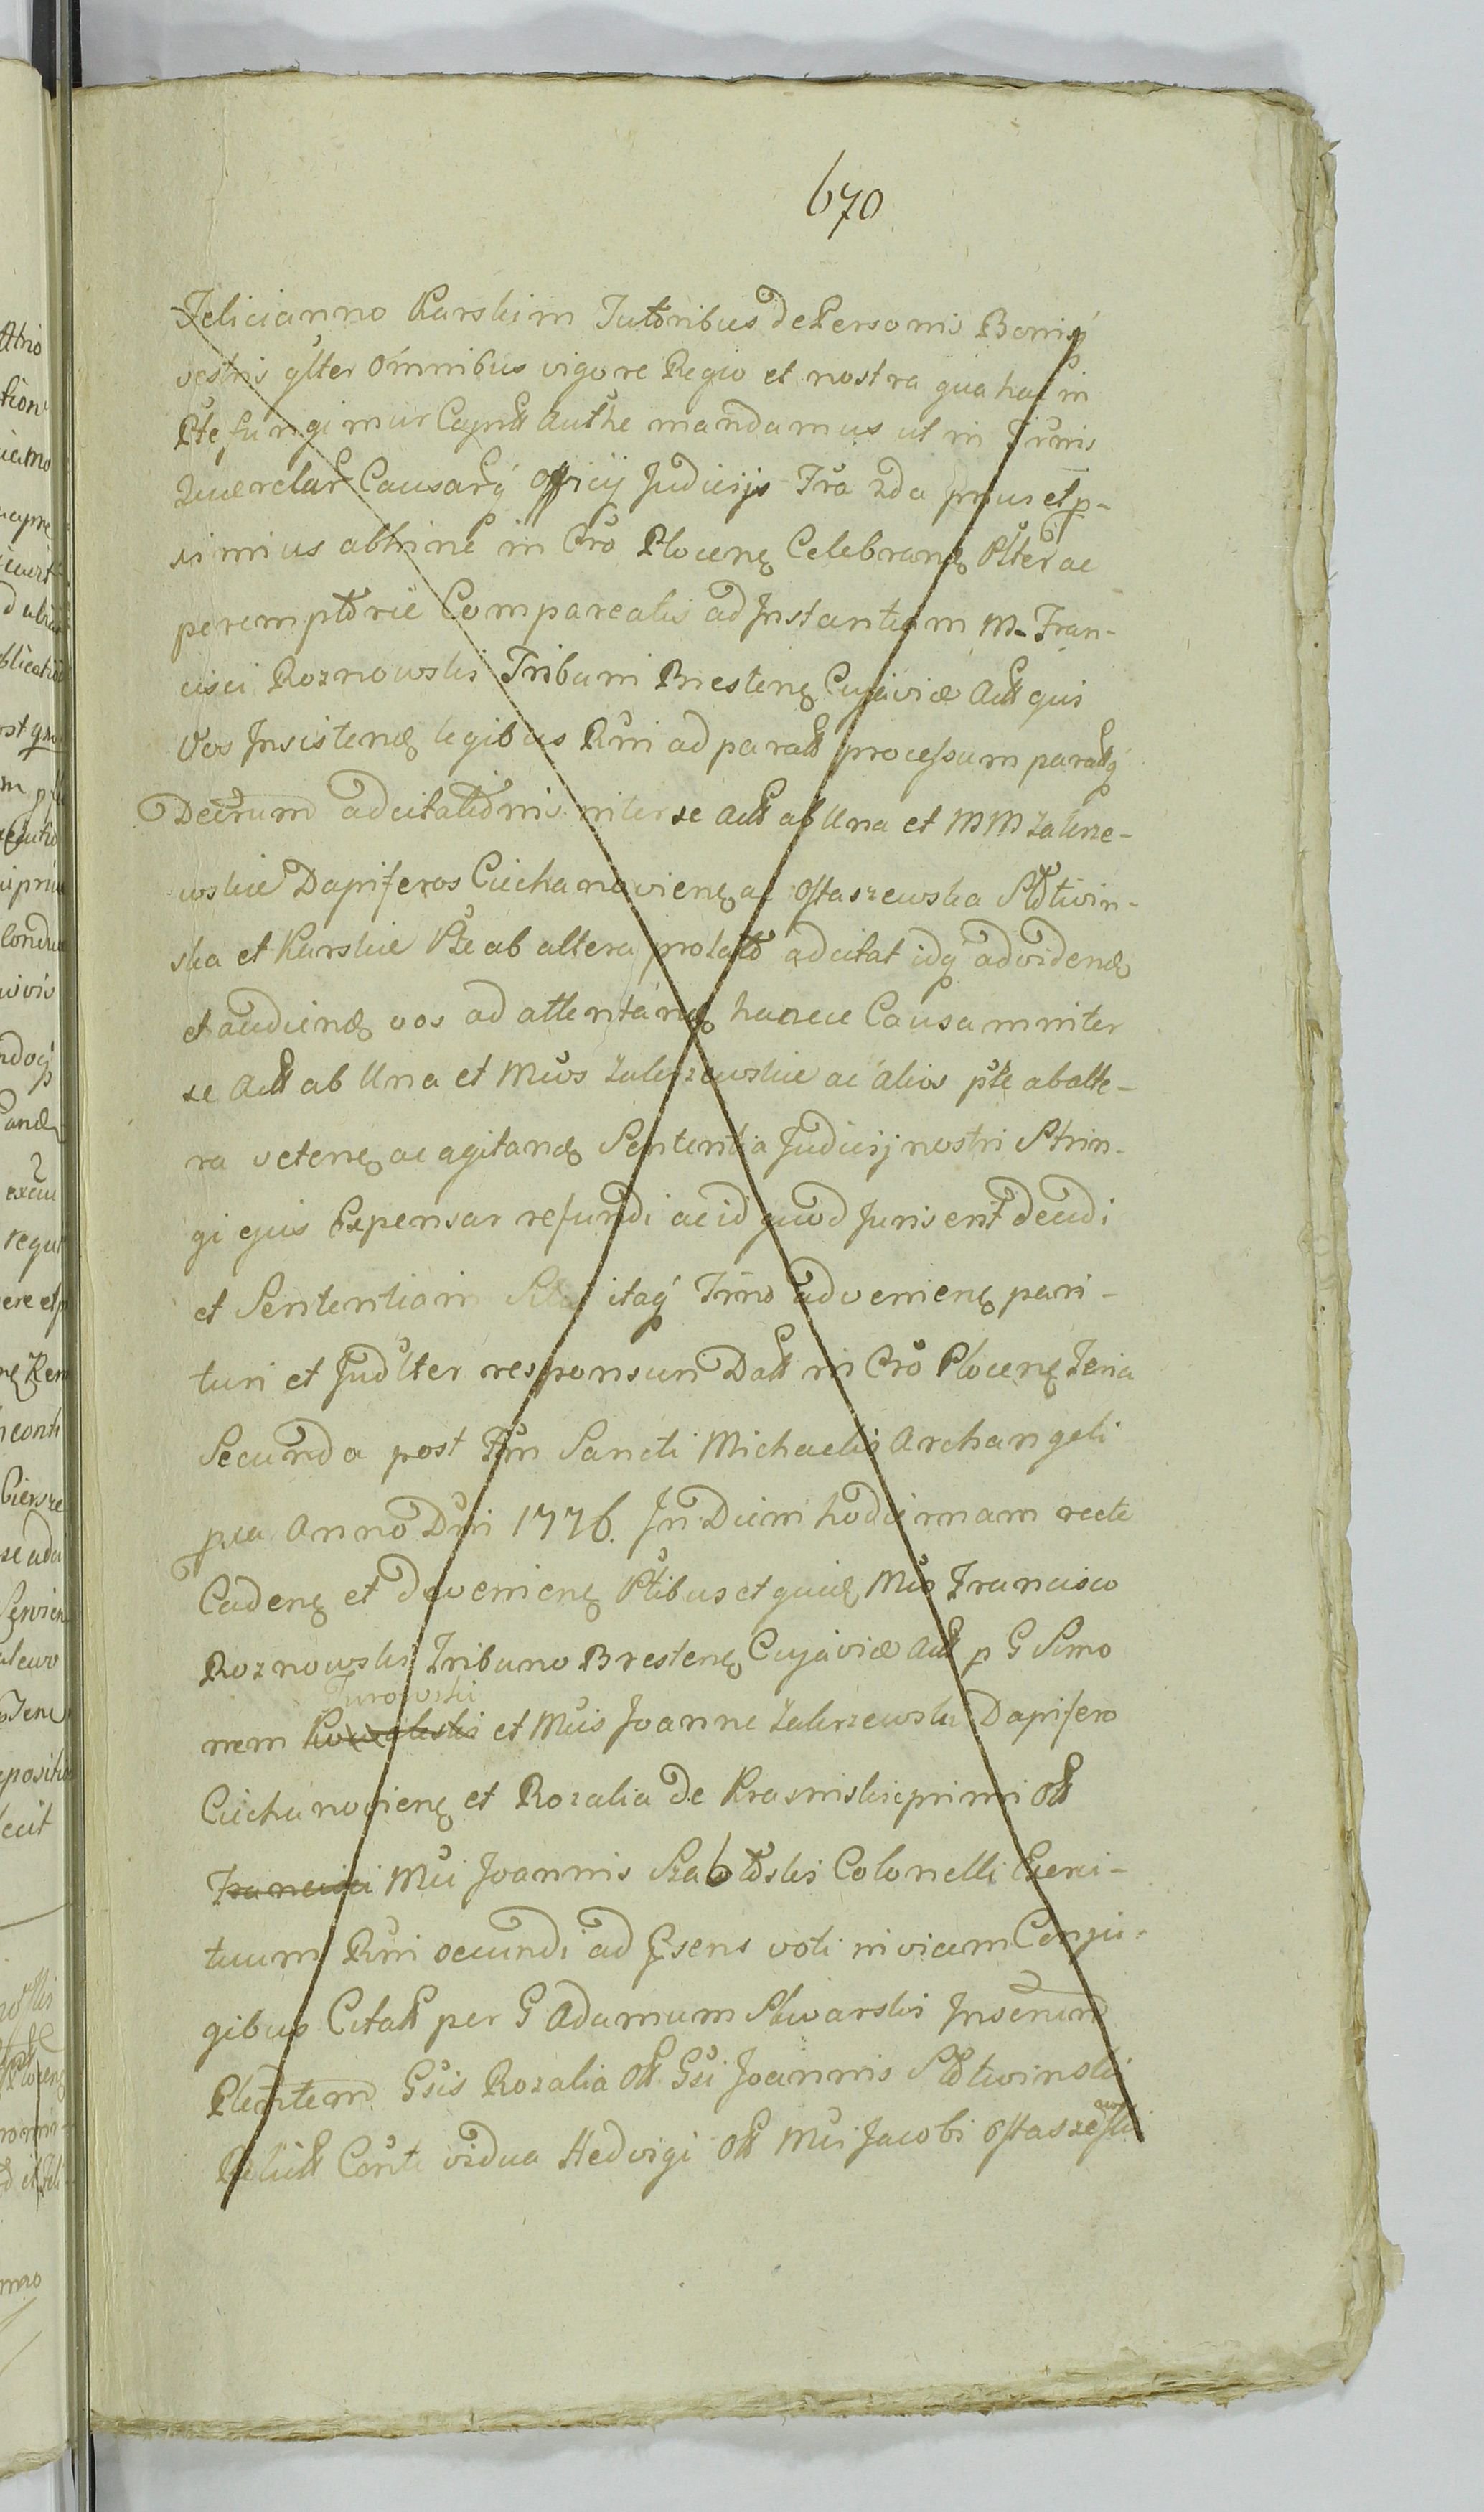 670
Felicianno Karskim Tutoribus de Personis Bonisq́
vestris glter omnibus vigore Regio et nostra qua hac in
Pte fungimur Captli Authe mandamus ut in Trmis
Querelar Causarq́ Officij Judicijs Fra 2da prius et p-
ximius abhinc in Cro Plocens Celebrand Plter ac
peremptorie Compareatis ad Instantiam M. Fran-
cisci Roznowski Tribuni Brestens Cujaviæ Act qui
Vos Insistend legibus Rni ad parati processum paratq́
Decrum adcitationis inter se Act ab Una et MM Zakrze-
wskie Dapiferos Ciechanoviens ac Ostaszewska Słotwin-
ska et Karskie Pte ab altera prolato adcitat idq́ ad vidend
et audiend vos ad attentand hancce Causam inter
se Act ab Una et Mcos Zakrzewskie ac alios pte ab alte-
ra vetens ac agitand Sententia Judicij nostri Strin-
gi ejus Expensar refundi ac id quod Juris erit decidi
et Sententiari itaq́ Trino adveniens pari-
turi et Judlter responsuri Datt in Cro Plocens Feria
Secunda post Ftm Sancti Michaelis Archangeli
pxa Anno Dni 1776. In Diem hodiernam recte
Cadens et deveniens Ptibus et quid Mco Francisco
Roznowski Tribuno Brestens Cujaviæ Act p G Simo
Turowski
nem Kowalski et Mcis Joanne Zakrzewski Dapifero
Ciechanoviens et Rozalia de Krasinskie primi olt
Francisci Mci Joannis Szabłoski Colonelli Exerci-
tuum Rni secundi ad Psens voti invicem Conju-
gibus Citatt per G Adamum Skwarski Inserund
Plentem Gsis Rozalia Olt Gsi Joannis Słotwinski
Relict Conte vidua Hedvigi Olt Mci Jacobi Ostaszewski